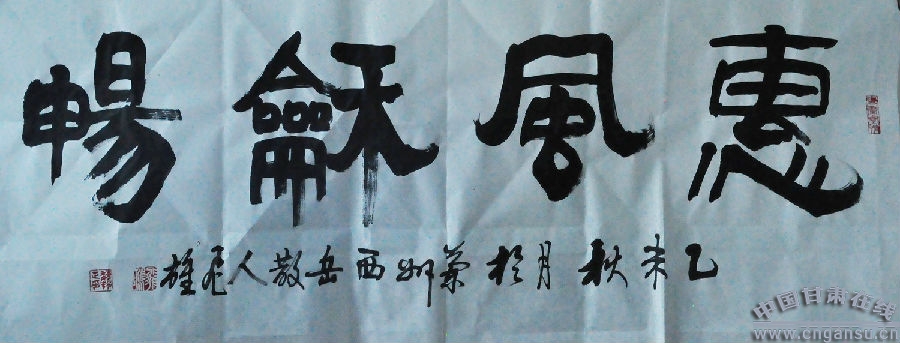 惠風龢暢
乙未秋月於蘭州西岳散人飛雄
中国甘肃在线
www.cngansu.cn